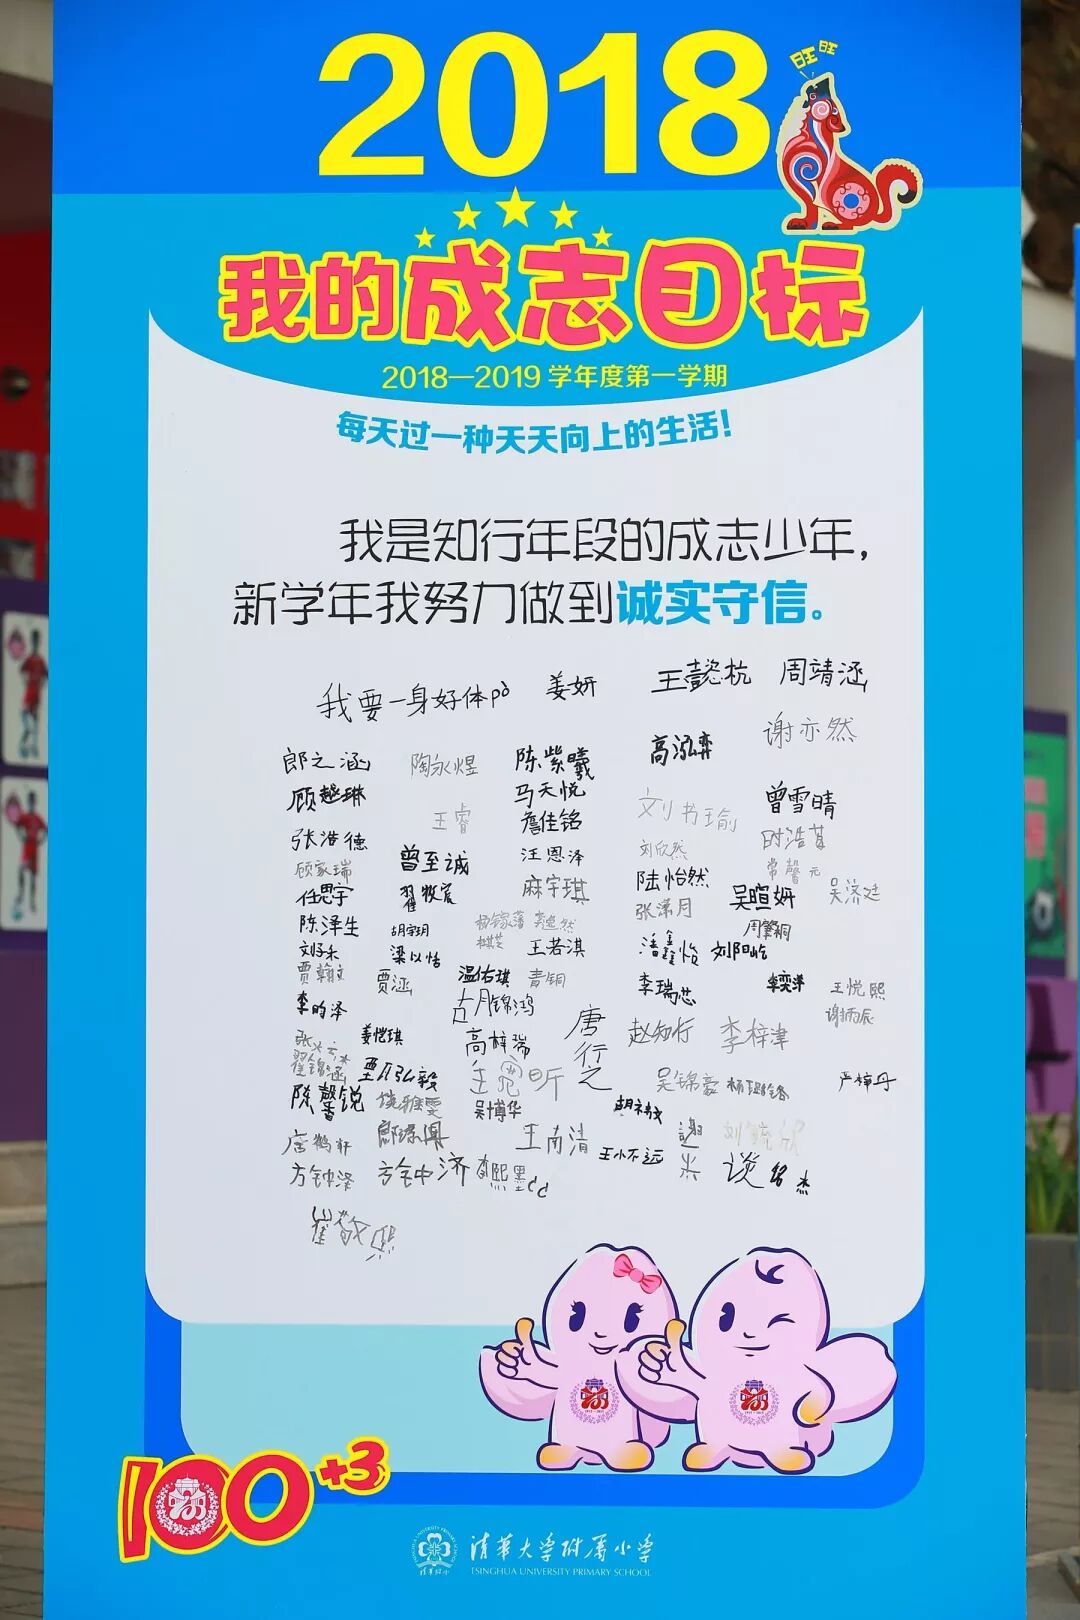 2018
旺旺
我的成志目标
2018—2019 学年度第一学期
每天过一种天天向上的生活！
我是知行年段的成志少年，
新学年我努力做到诚实守信。
我要一身好体pò 姜妍 王懿杭 周靖涵
谢亦然
郎之涵 陶永煜 陈紫曦 高泓弈
顾越琳 马天悦 刘书瑜 曾雪晴
王睿 詹佳铭
张浩德 曾至诚 汪恩泽 刘欣然
顾家瑞 麻宇琪 陆怡然 常馨元
任思宇 翟牧宸 张潇月 吴暄妍 吴济廷
陈泽生 胡宇玥
梁以恬 王若淇 潘鑫怡 刘阳屹
贾翰文 贾涵 温佑琪 青铜 李瑞芯 王悦熙
李昀泽 胡锦鸿
姜恺琪 高梓瑞 唐行之 赵知行 李梓津
翟锦涵 吴锦豪 严梓丹
陈馨锐 饶雅雯 吴博华
唐鹤轩 王南清 王小不远 谢
方钟泽 方钟济 李熙墨 谈铭杰
崔敬熙
100+3
清华大学附属小学
TSINGHUA UNIVERSITY PRIMARY SCHOOL
清华附小